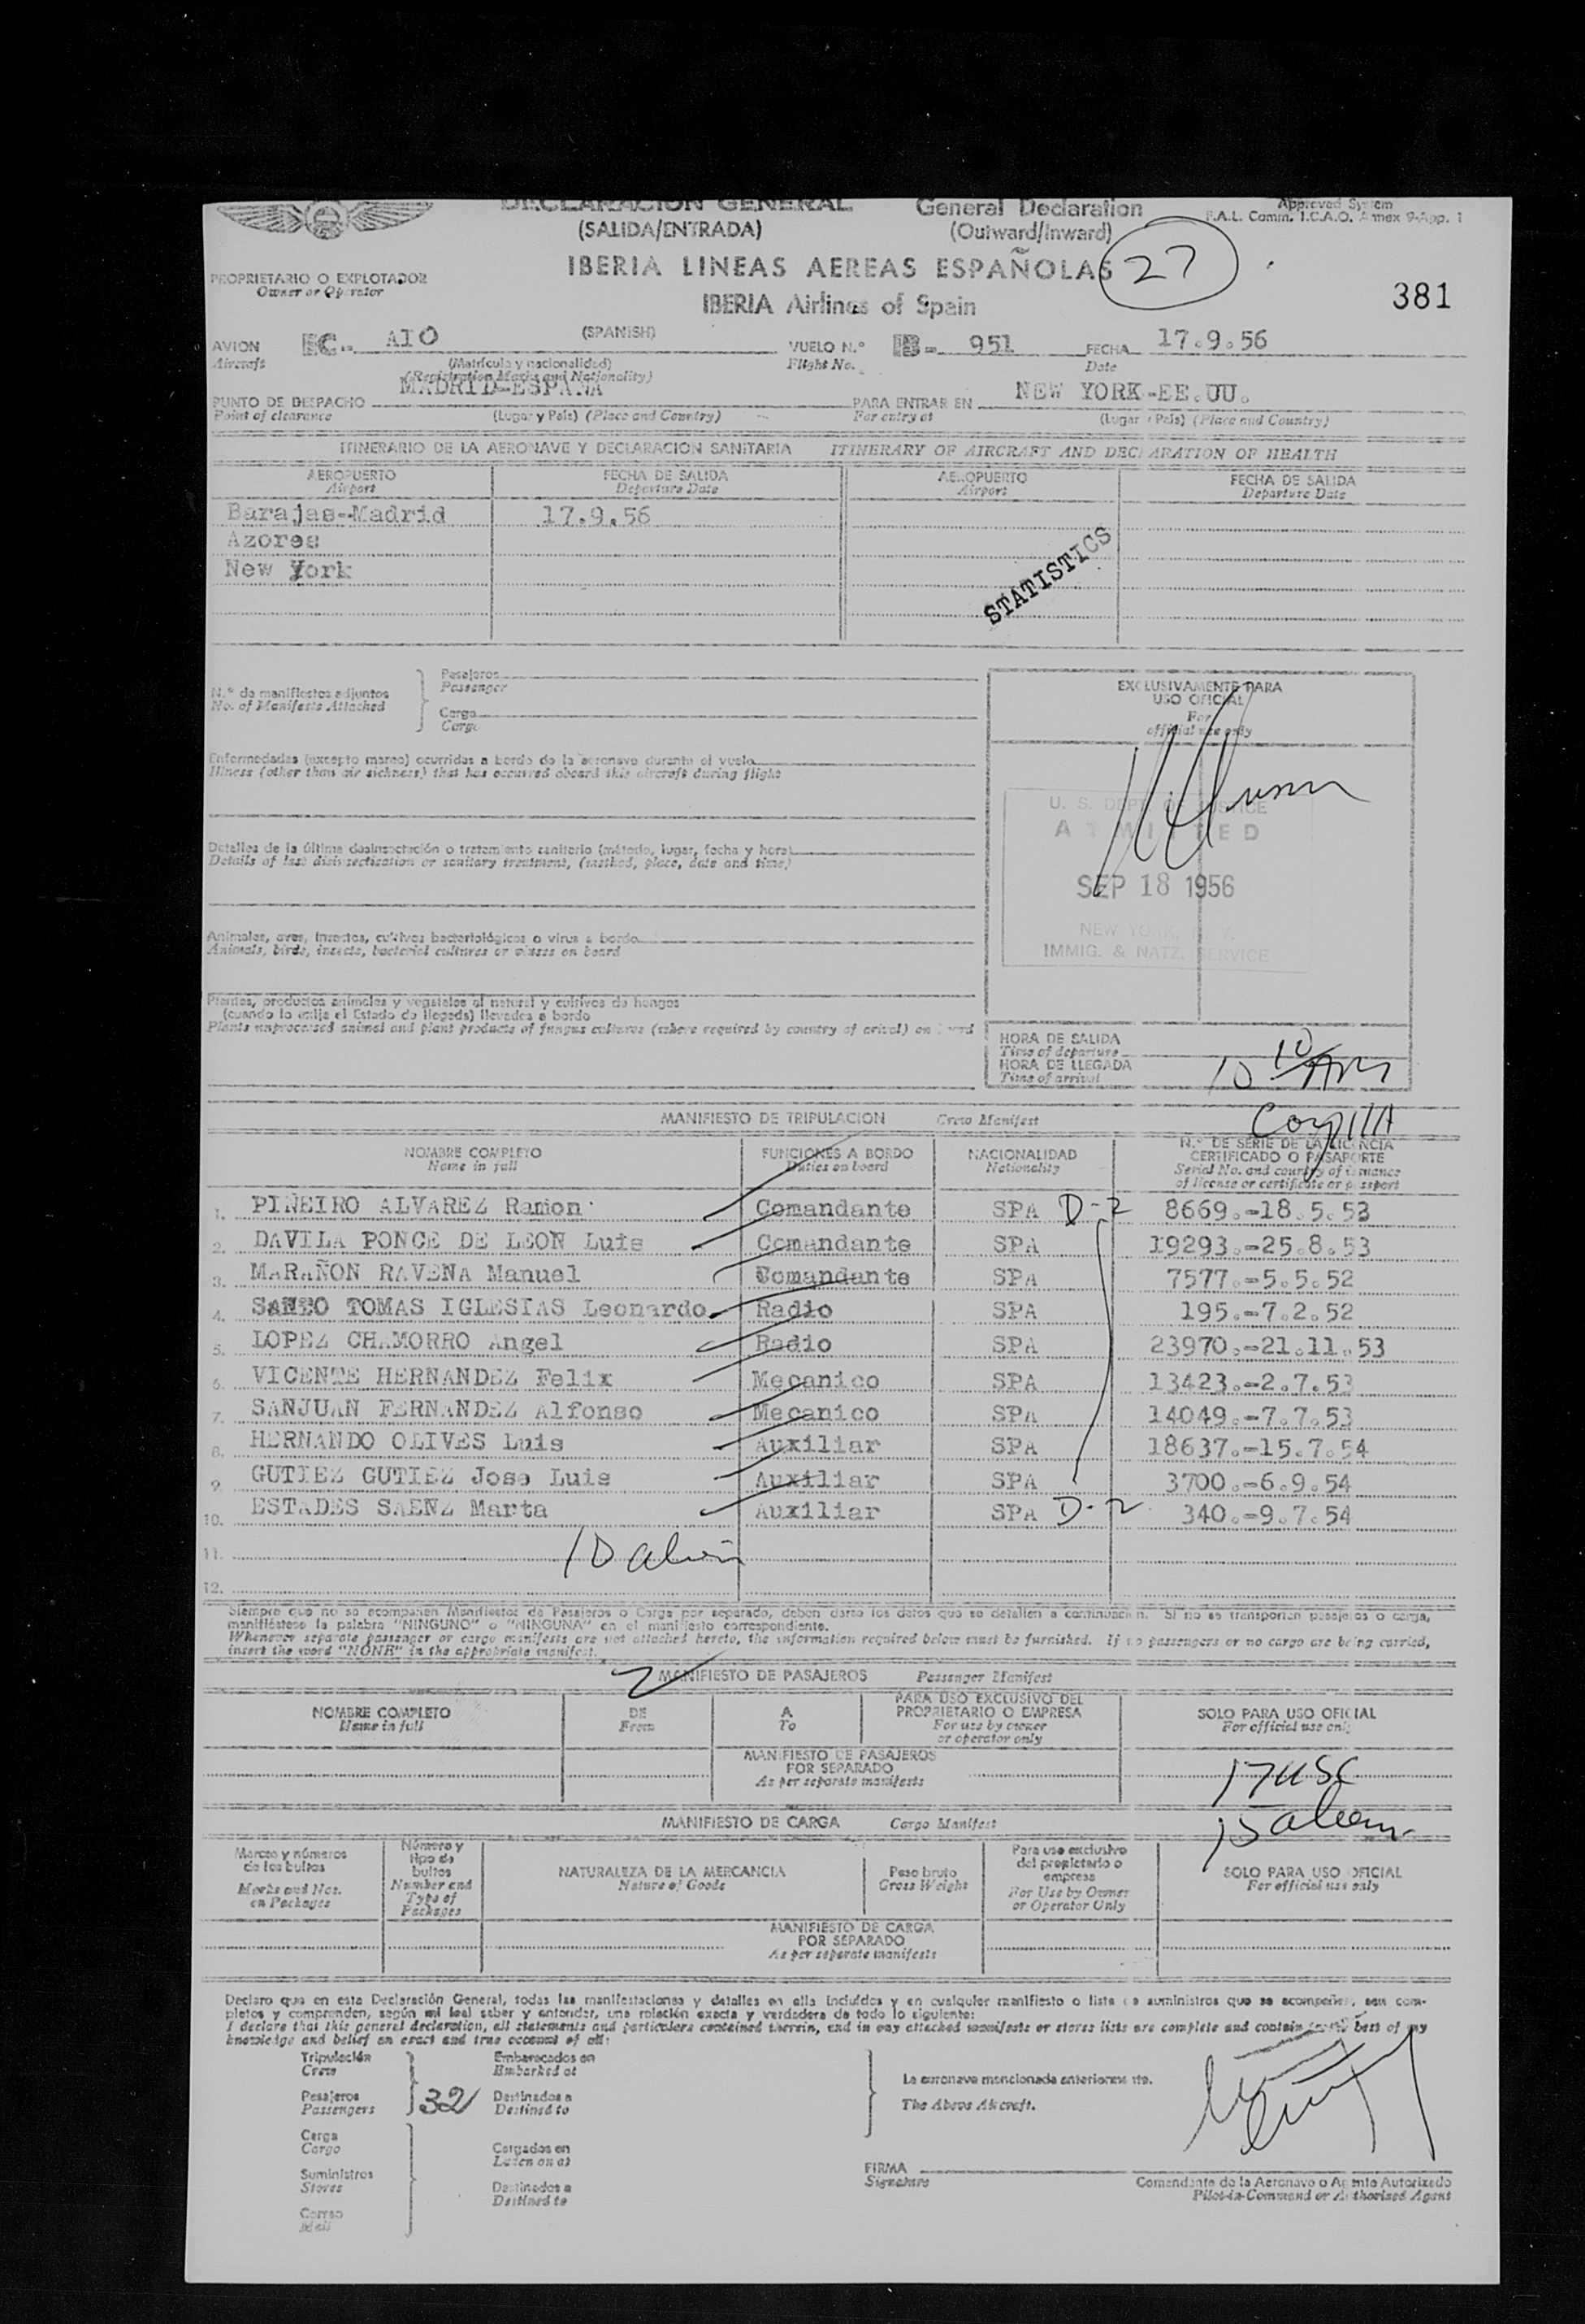 DECLARACION GENERAL General Declaration Approved System
(SALIDA/ENTRADA) (Outward/Inward) F.A.L. Comm. I.C.A.O. Annex 9-App. 1
IBERIA LINEAS AEREAS ESPAÑOLAS 27
PROPRIETARIO O EXPLOTADOR
Owner or Operator
IBERIA Airlines of Spain 381
AVION EC.- AIO (SPANISH) VUELO N.º IB- 951 FECHA 17.9.56
Aircraft (Matrícula y nacionalidad) Flight No. Date
(Registration Marks and Nationality)
PUNTO DE DESPACHO MADRID-ESPAÑA PARA ENTRAR EN NEW YORK-EE.UU.
Point of clearance (Lugar y País) (Place and Country) For entry at (Lugar y País) (Place and Country)
ITINERARIO DE LA AERONAVE Y DECLARACION SANITARIA ITINERARY OF AIRCRAFT AND DECLARATION OF HEALTH
AEROPUERTO FECHA DE SALIDA AEROPUERTO FECHA DE SALIDA
Airport Departure Date Airport Departure Date
Barajas-Madrid 17.9.56
Azores
New York
STATISTICS
N.º de manifiestos adjuntos Pasajeros
No. of Manifests Attached Passenger
Carga
Cargo
EXCLUSIVAMENTE PARA
USO OFICIAL
For
official use only
Enfermedades (excepto mareo) ocurridas a bordo de la aeronave durante el vuelo
Illness (other than air sickness) that has occured aboard this aircraft during flight
U. S. DEPT. OF JUSTICE
ADMITTED
SEP 18 1956
NEW YORK, N. Y.
IMMIG. & NATZ. SERVICE
Detalles de la última desinsectación o tratamiento sanitario (método, lugar, fecha y hora)
Details of last disinsectisation or sanitary treatment, (method, place, date and time)
Animales, aves, insectos, cultivos bacteriológicos o virus a bordo
Animals, birds, insects, bacterial cultures or viuses on board
Plantas, productos animales y vegetales al natural y cultivos de hongos
(cuando lo exija el Estado de llegada) llevados a bordo
Plants unprocessed animal and plant products of fungus cultures (where required by country of arival) on board
HORA DE SALIDA
Time of departure
HORA DE LLEGADA 10 10 AM
Time of arrival
MANIFIESTO DE TRIPULACION Crew Manifest
NOMBRE COMPLETO FUNCIONES A BORDO NACIONALIDAD N.º DE SERIE DE LA LICENCIA
Name in full Duties on board Nationality CERTIFICADO O PASAPORTE
Serial No. and country of issuance
of license or certificate or passport
1. PIÑEIRO ALVAREZ Ramon Comandante SPA D-2 8669.-18.5.53
2. DAVILA PONCE DE LEON Luis Comandante SPA 19293.-25.8.53
3. MARAÑON RAVENA Manuel Comandante SPA 7577.-5.5.52
4. SANTO TOMAS IGLESIAS Leonardo Radio SPA 195.-7.2.52
5. LOPEZ CHAMORRO Angel Radio SPA 23970.-21.11.53
6. VICENTE HERNANDEZ Felix Mecanico SPA 13423.-2.7.53
7. SANJUAN FERNANDEZ Alfonso Mecanico SPA 14049.-7.7.53
8. HERNANDO OLIVES Luis Auxiliar SPA 18637.-15.7.54
9. GUTIEZ GUTIEZ Jose Luis Auxiliar SPA 3700.-6.9.54
10. ESTADES SAENZ Marta Auxiliar SPA D-2 340.-9.7.54
11. 10 alien
12.
Siempre que no se acompañen Manifiestos de Pasajeros o Carga por separado, deben darse los datos que se detallen a continuación. Si no se transporten pasajeros o carga,
manifiéstese la palabra "NINGUNO" o "NINGUNA" en el manifiesto correspondiente.
Whenever separate passenger or cargo manifests are not attached hereto, the information required below must be furnished. If no passengers or no cargo are being carried,
insert the word "NONE" in the appropriate manifest.
MANIFIESTO DE PASAJEROS Passenger Manifest
NOMBRE COMPLETO DE A PARA USO EXCLUSIVO DEL SOLO PARA USO OFICIAL
Name in full From To PROPRIETARIO O EMPRESA For official use only
For use by owner
or operator only
MANIFIESTO DE PASAJEROS
POR SEPARADO 17 USC
As per separate manifests
15 alien
MANIFIESTO DE CARGA Cargo Manifest
Marcas y números de los bultos
Marks and Nos. on Packages
Número y tipo de bultos
Number and Type of Packages
NATURALEZA DE LA MERCANCIA
Nature of Goods
Peso bruto
Gross Weight
Para uso exclusivo del propietario o empresa
For Use by Owner or Operator Only
SOLO PARA USO OFICIAL
For official use only
MANIFIESTO DE CARGA
POR SEPARADO
As per separate manifests
Declaro que en esta Declaración General, todas las manifestaciones y detalles en ella incluídos y en cualquier manifiesto o lista de suministros que se acompañen, son com-
pletos y comprenden, según mi leal saber y entender, una relación exacta y verdadera de todo lo siguiente:
I declare that this general declaration, all statements and particulars contained therein, and in any attached manifests or stores lists are complete and contain to the best of my
knowledge and belief an exact and true account of all:
Tripulación Embarcados en
Crew Embarked at
Pasajeros 32 Destinados a La aeronave mencionada anteriormente.
Passengers Destined to The Above Aircraft.
Carga
Cargo Cargados en
Laden on at
Suministros FIRMA
Stores Destinados a Signature Comandante de la Aeronave o Agente Autorizado
Destined to Pilot-in-Command or Authorised Agent
Correo
Mail